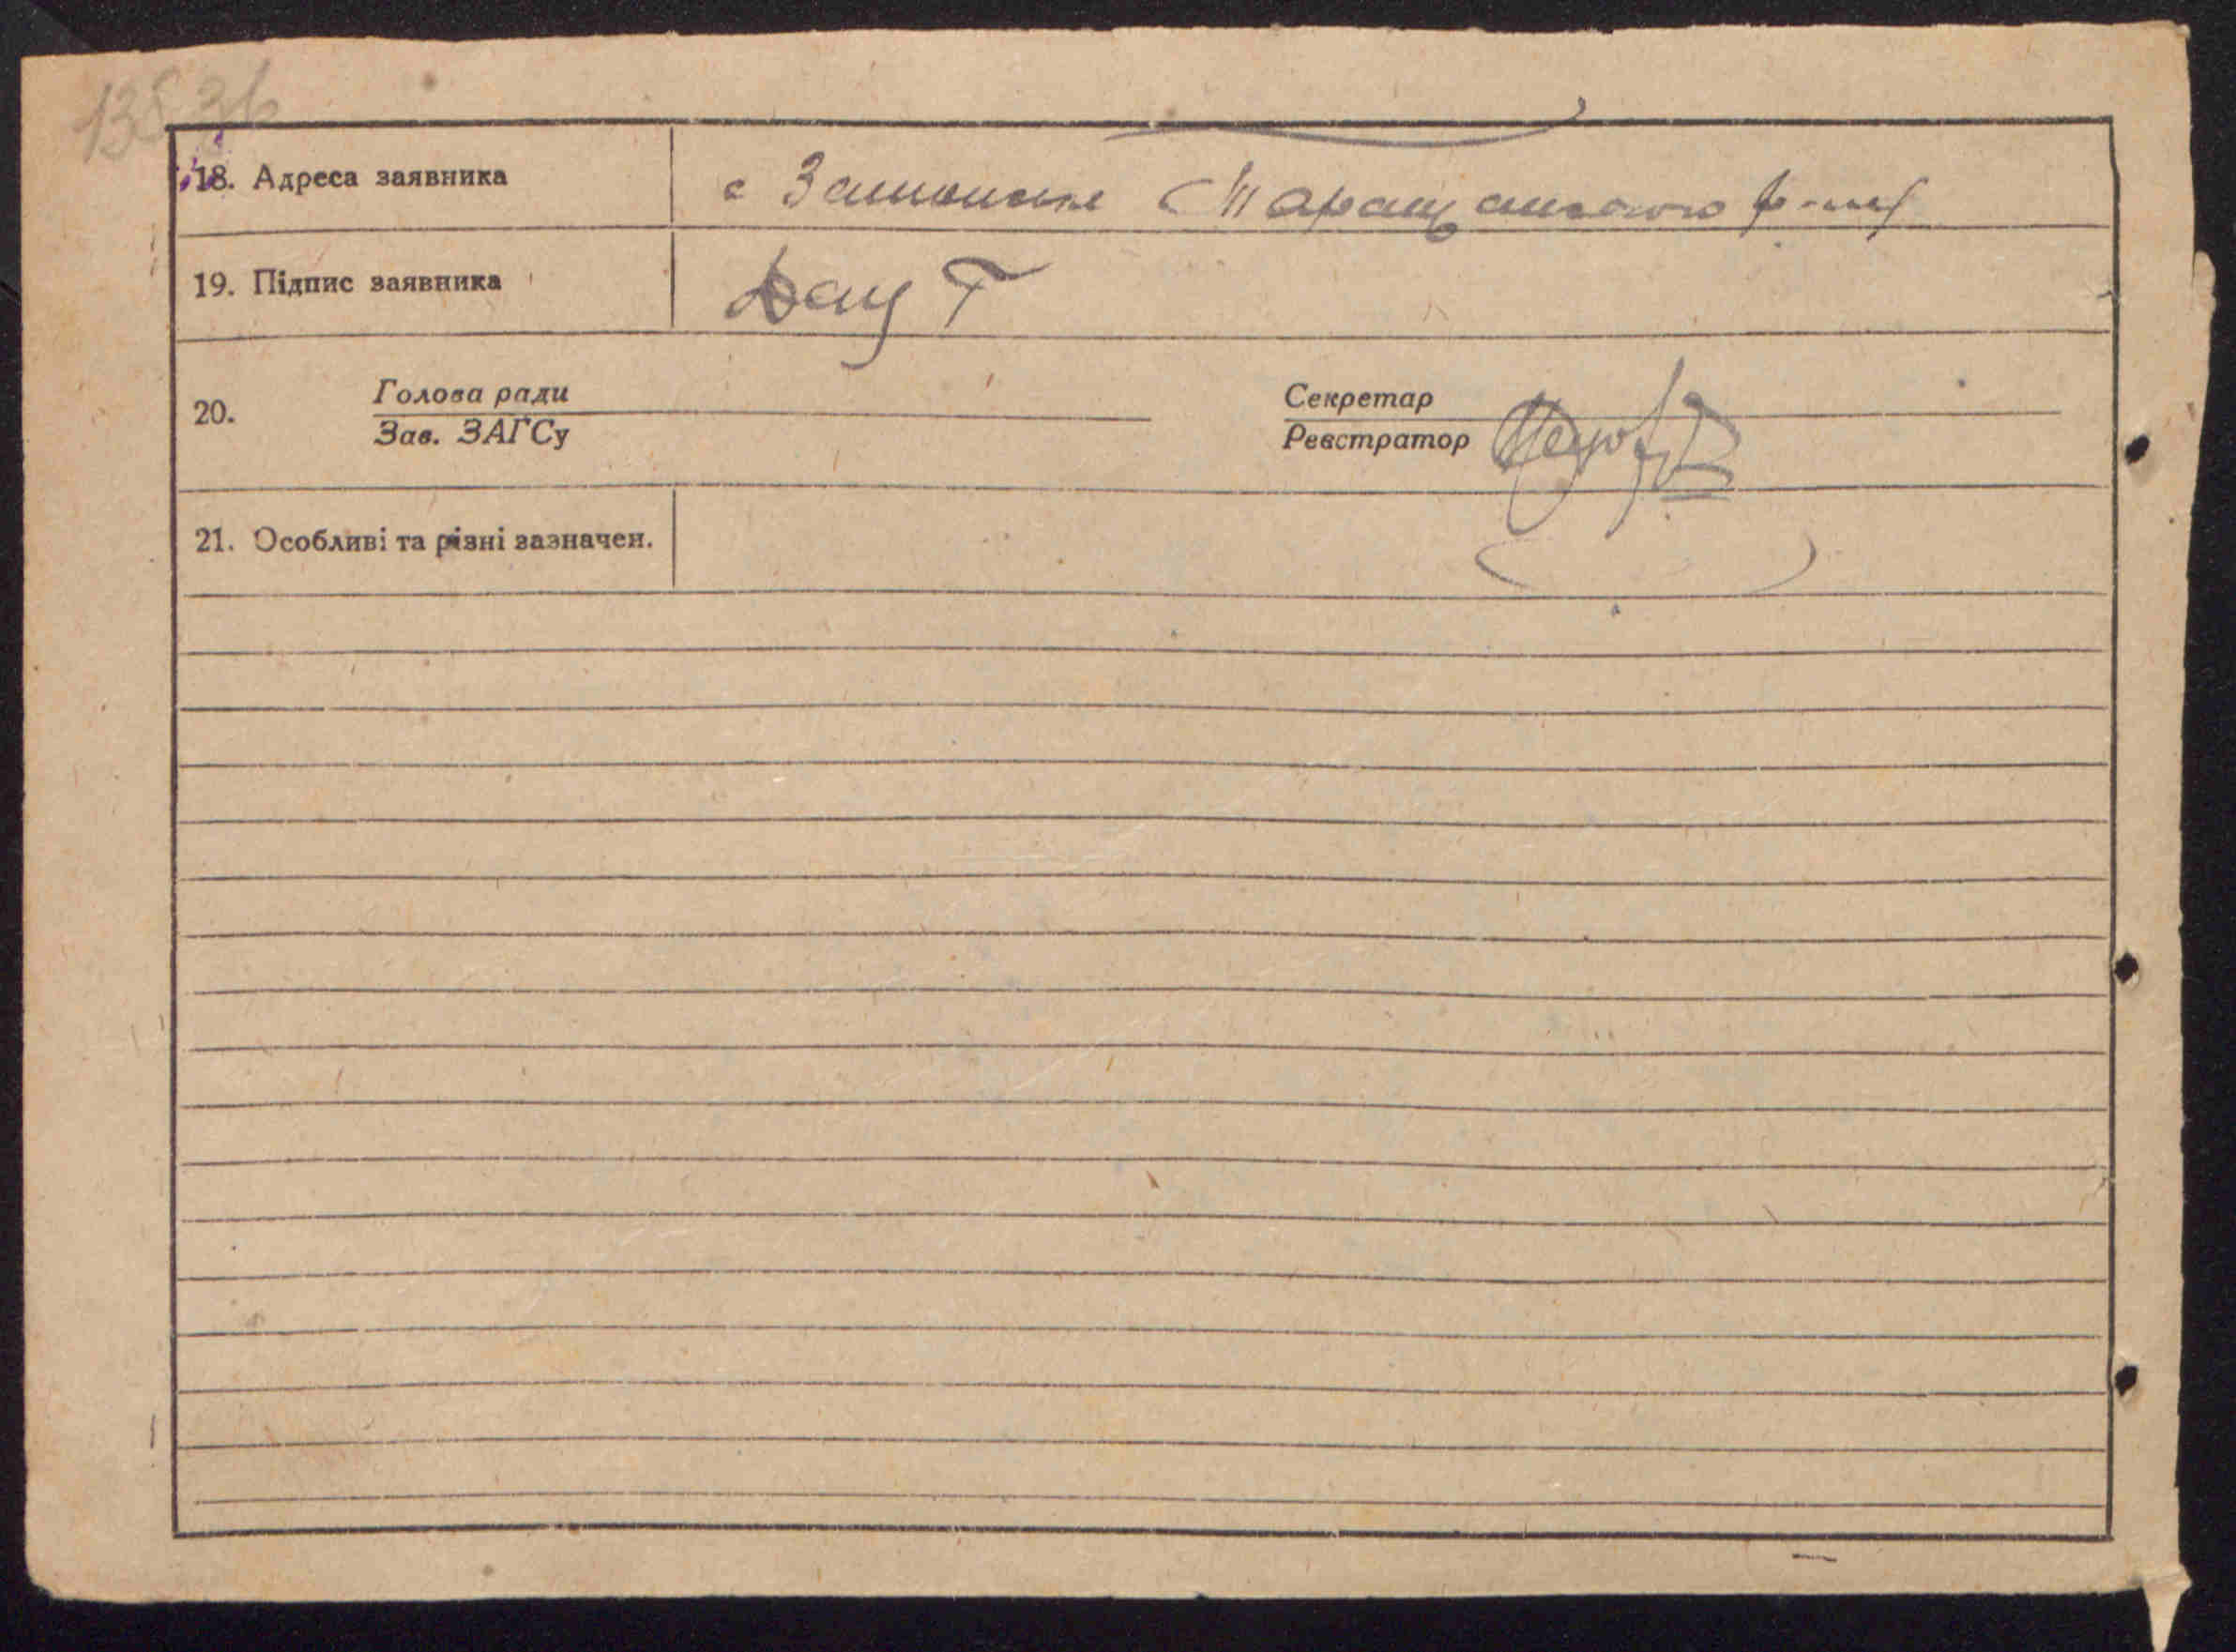 18. Адреса заявника с Таращанського р-ну
19. Підпис заявника Дащ Т
20. Голова ради Секретар
Зав. ЗАГСу Реєстратор
21. Особливі та різні зазначен.